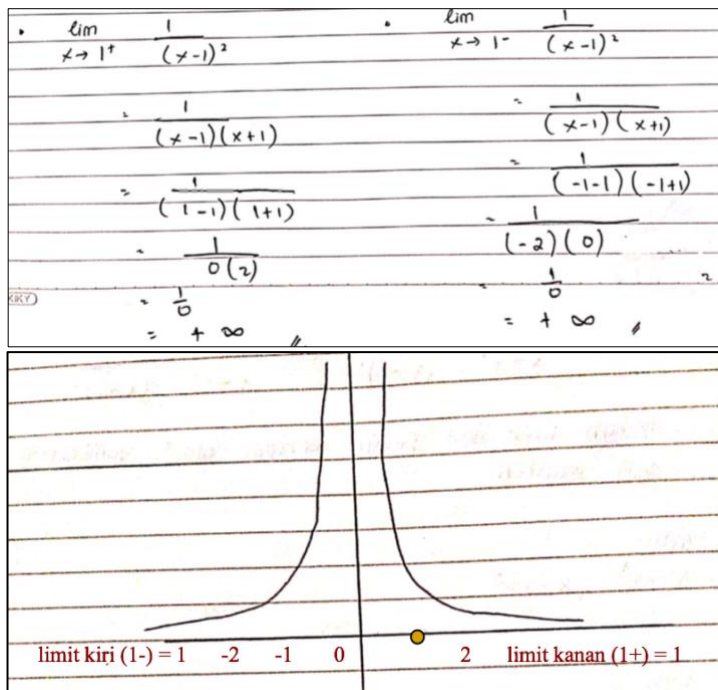 • lim x→1⁺ 1/(x-1)²
= 1/(x-1)(x+1)
= 1/(1-1)(1+1)
= 1/0(2)
= 1/0
= + ∞ //
• lim x→1⁻ 1/(x-1)²
= 1/(x-1)(x+1)
= 1/(-1-1)(-1+1)
= 1/(-2)(0)
= 1/0
= + ∞ //
limit kiri (1-) = 1 -2 -1 0 2 limit kanan (1+) = 1